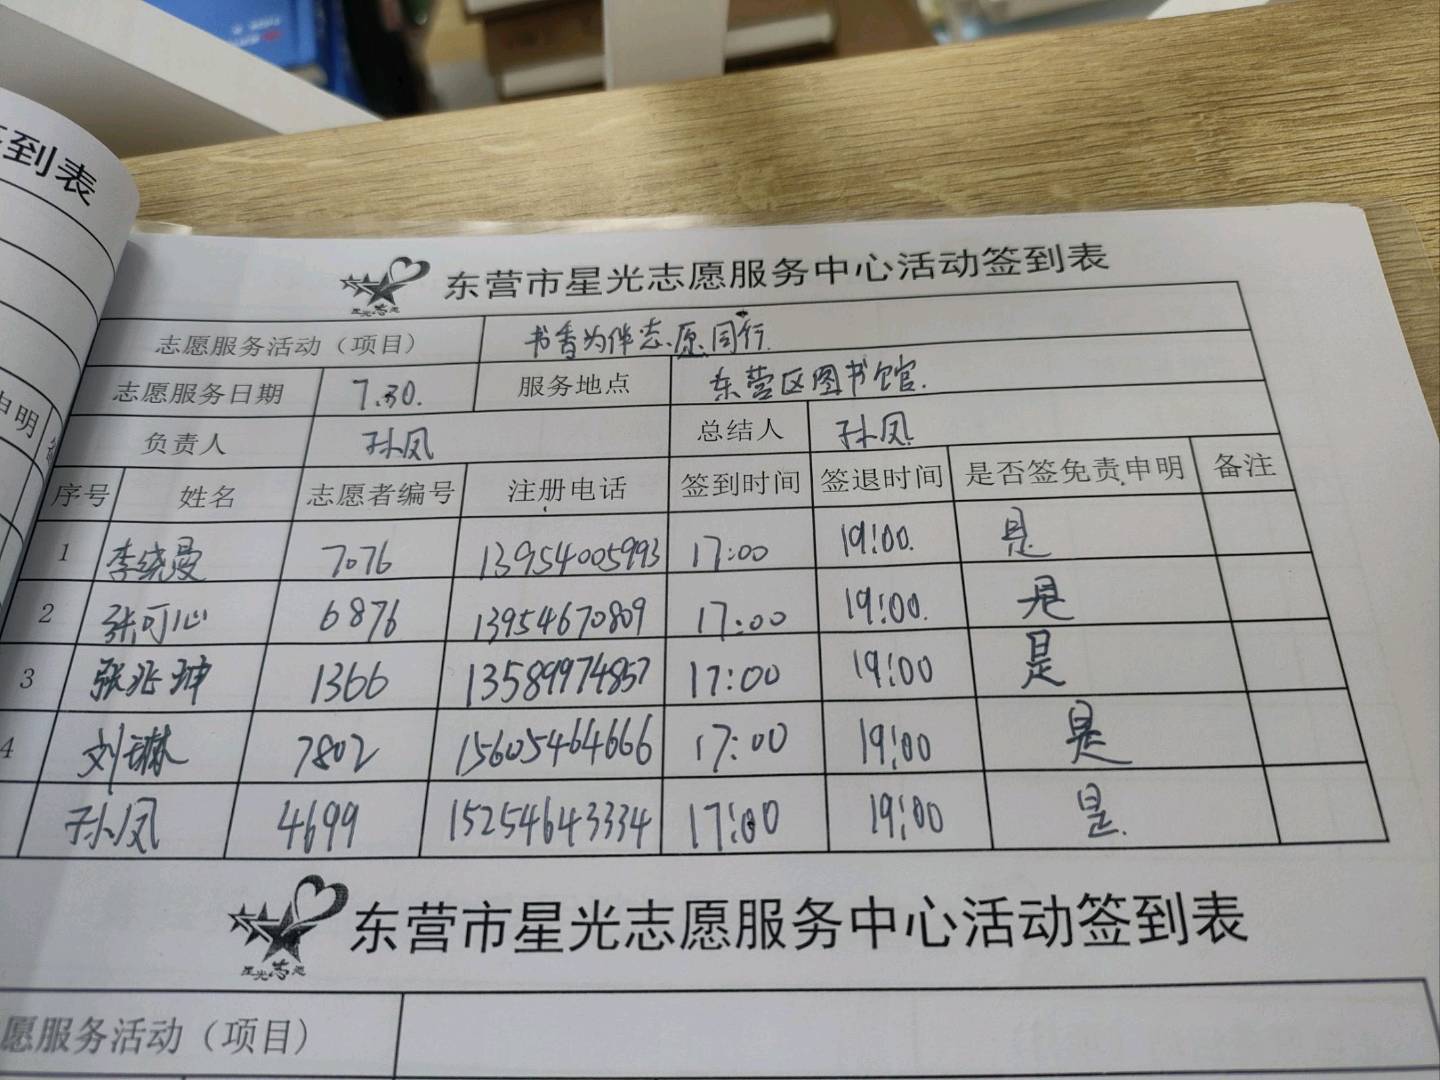 到表
申明
东营市星光志愿服务中心活动签到表
星光志愿
志愿服务活动（项目） 书香为伴志愿同行.
志愿服务日期 7.30. 服务地点 东营区图书馆.
负责人 孙凤 总结人 孙凤
序号 姓名 志愿者编号 注册电话 签到时间 签退时间 是否签免责申明 备注
1 李晓曼 7076 13954005993 17:00 19:00. 是
2 张可心 6876 13954670809 17:00 19:00. 是
3 张兆坤 1366 13589974857 17:00 19:00 是
4 刘琳 7802 15605464666 17:00 19:00 是
孙凤 4699 15254643334 17:00 19:00 是.
东营市星光志愿服务中心活动签到表
星光志愿
愿服务活动（项目）